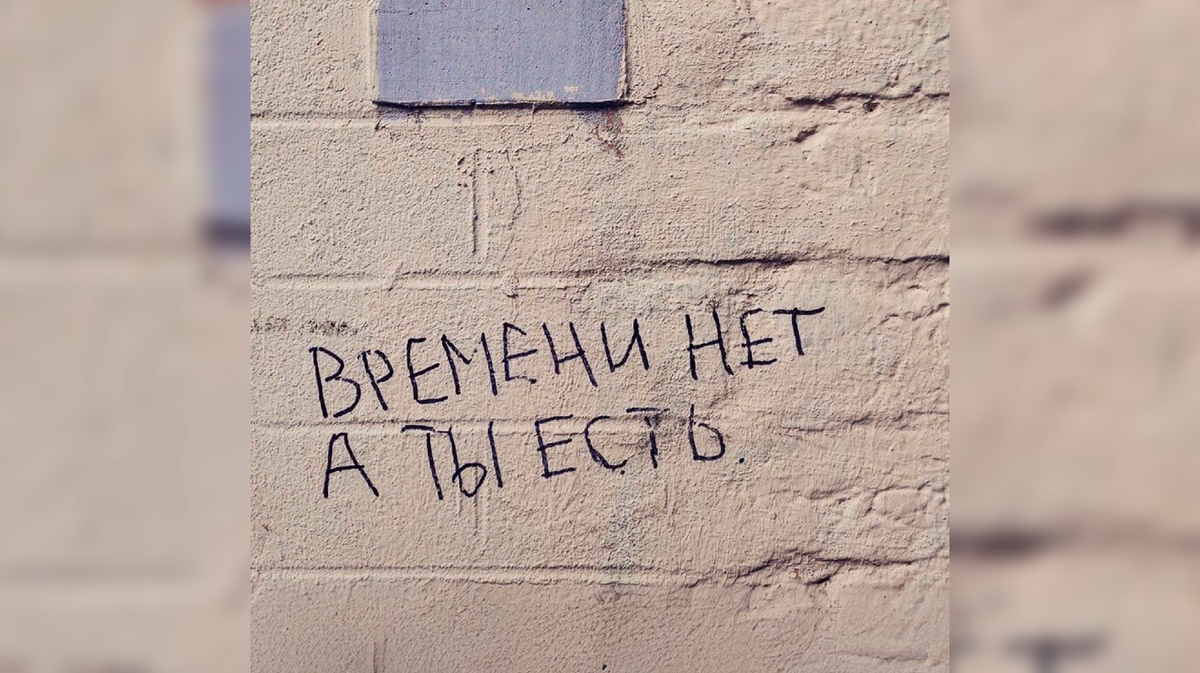 ВРЕМЕНИ НЕТ
А ТЫ ЕСТЬ.